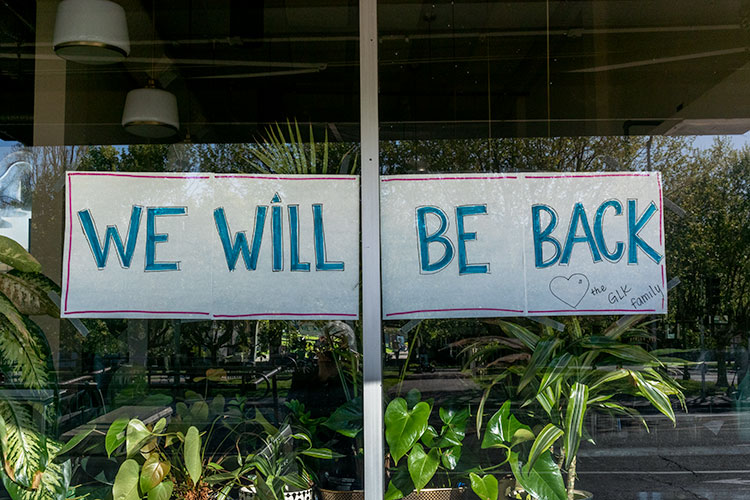 WE WILL BE BACK
the GLK
family